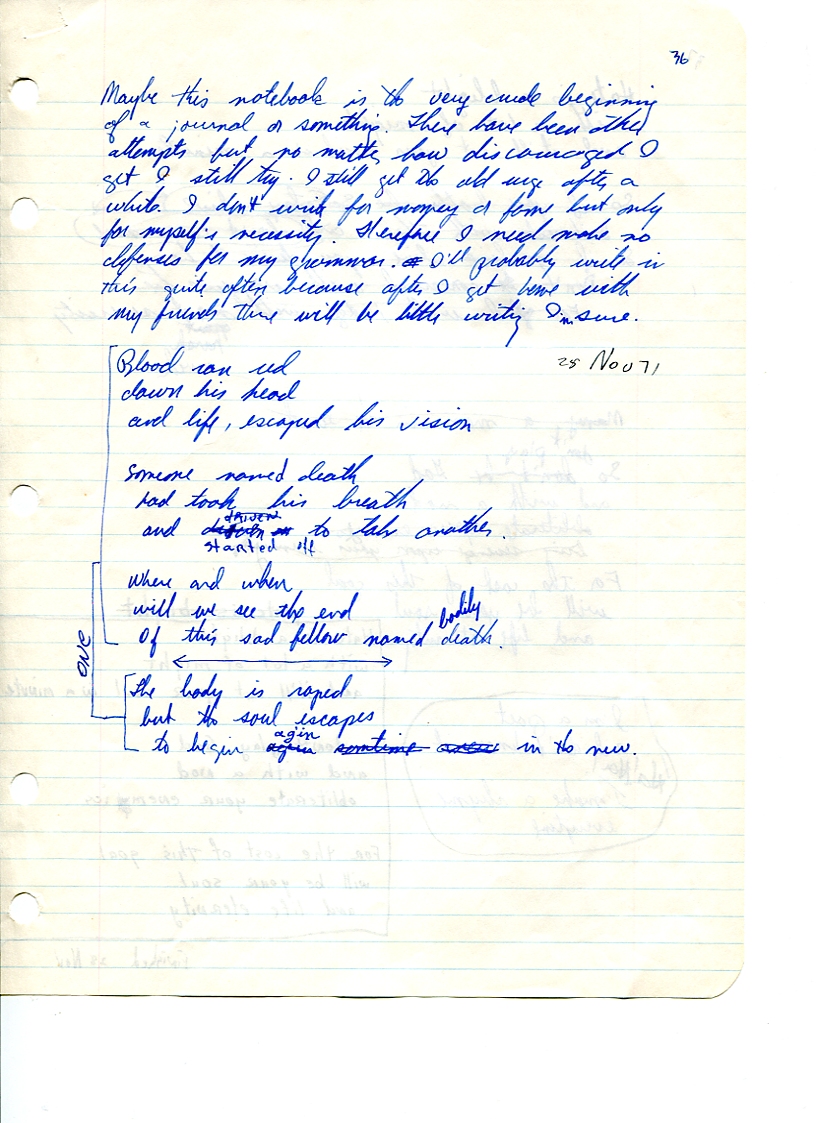 36
Maybe this notebook is the very crude beginning
of a journal or something. There have been other
attempts but no matter how discouraged I
get I still try. I still get the old urge after a
while. I don't write for money or fame but only
for myself's necessity. Therefore I need make no
defenses for my grammar. I'll probably write in
this quite often because after I get home with
my friends there will be little writing I'm sure.
25 Nov 71
Blood ran red
down his head
and life, escaped his vision
Someone named death
had took his breath
DRIVEN
and to take another.
started off
Where and when
will we see the end
bodily
Of this sad fellow named death.
ONE
The body is raped
but the soul escapes
agin
to begin again sometime anew in the new.